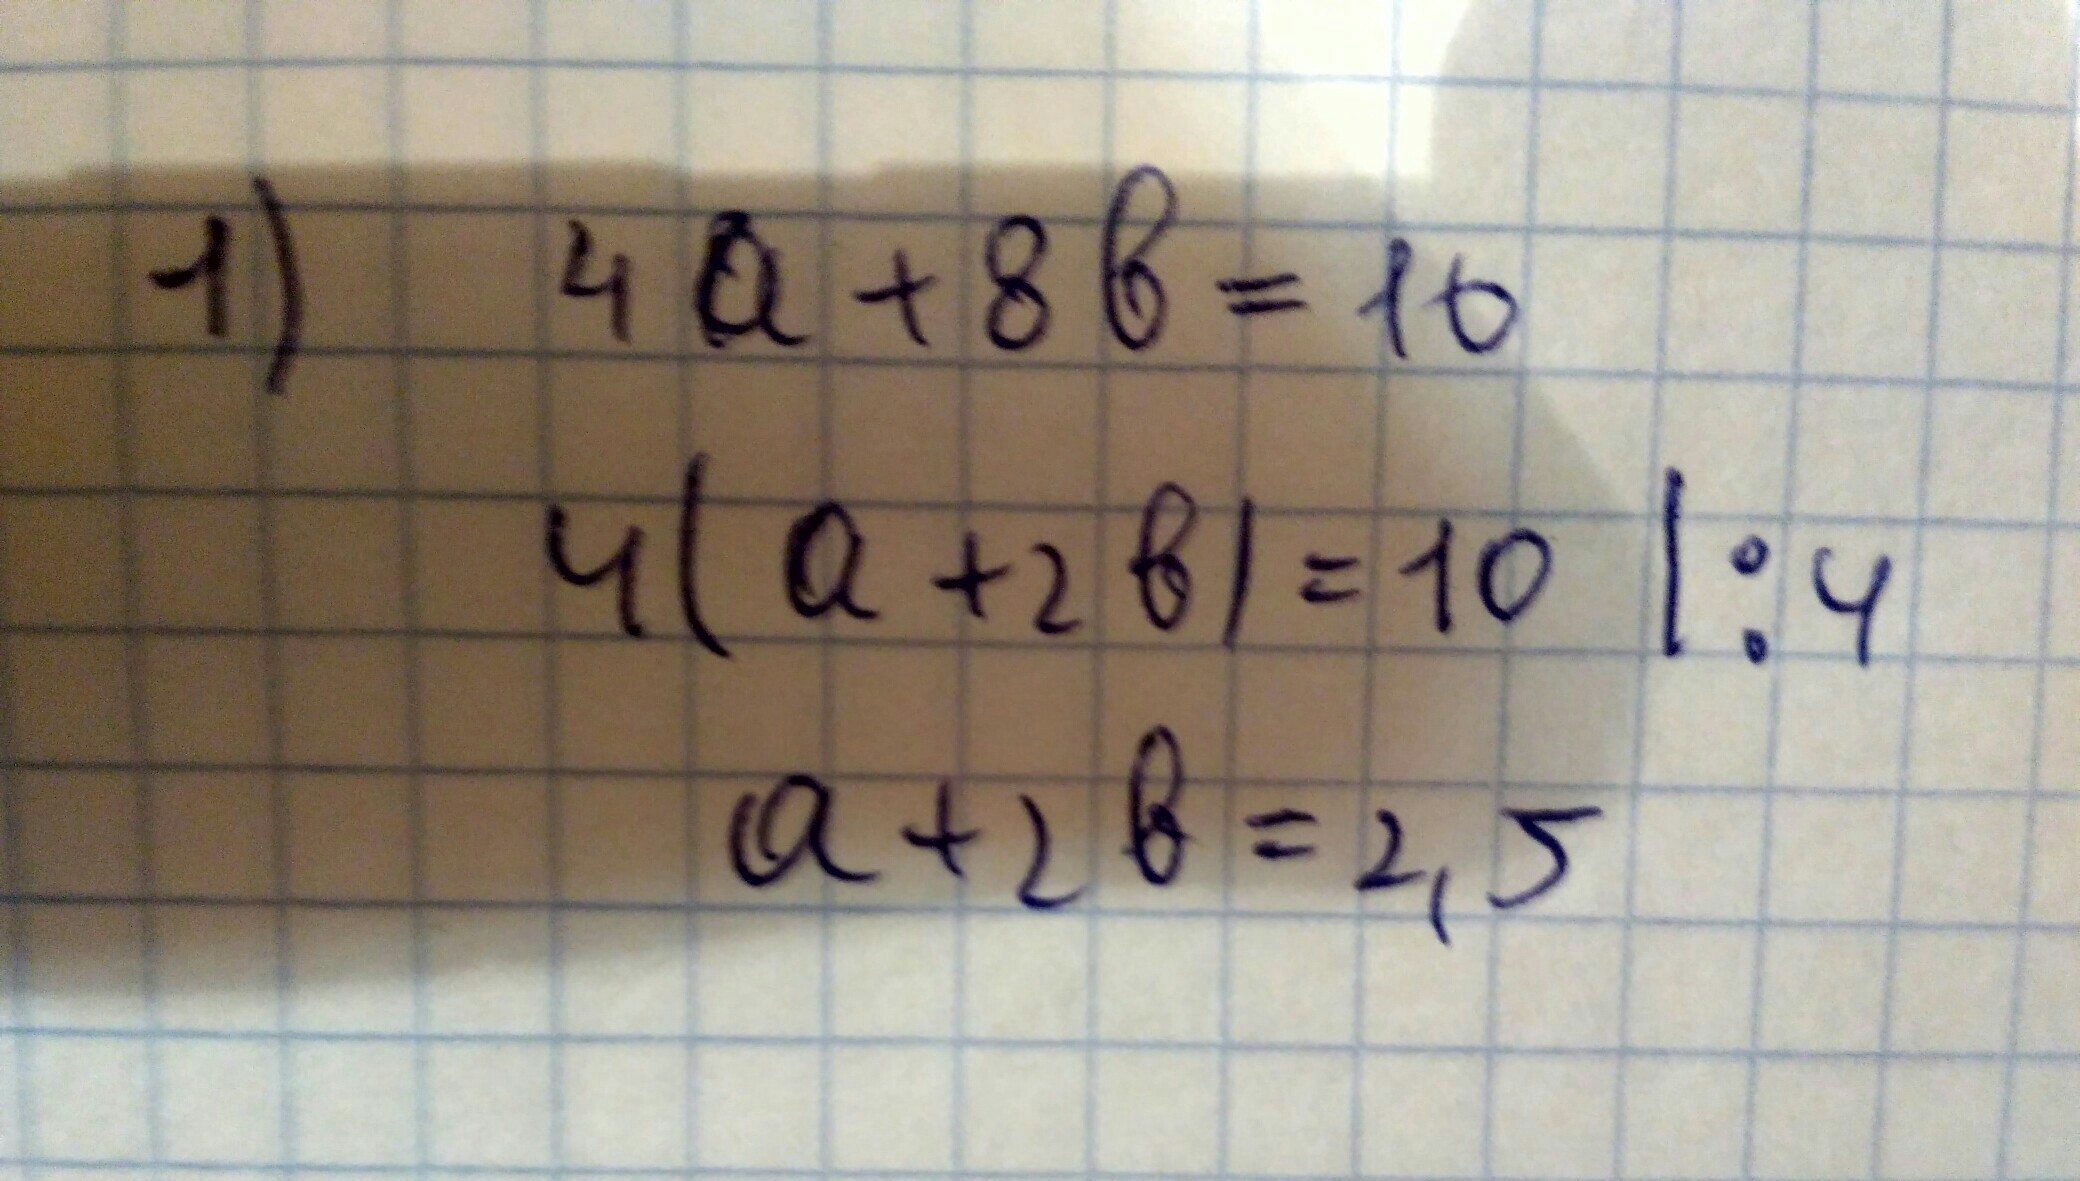 1) 4a+8b=10
4(a+2b)=10 |:4
a+2b=2,5